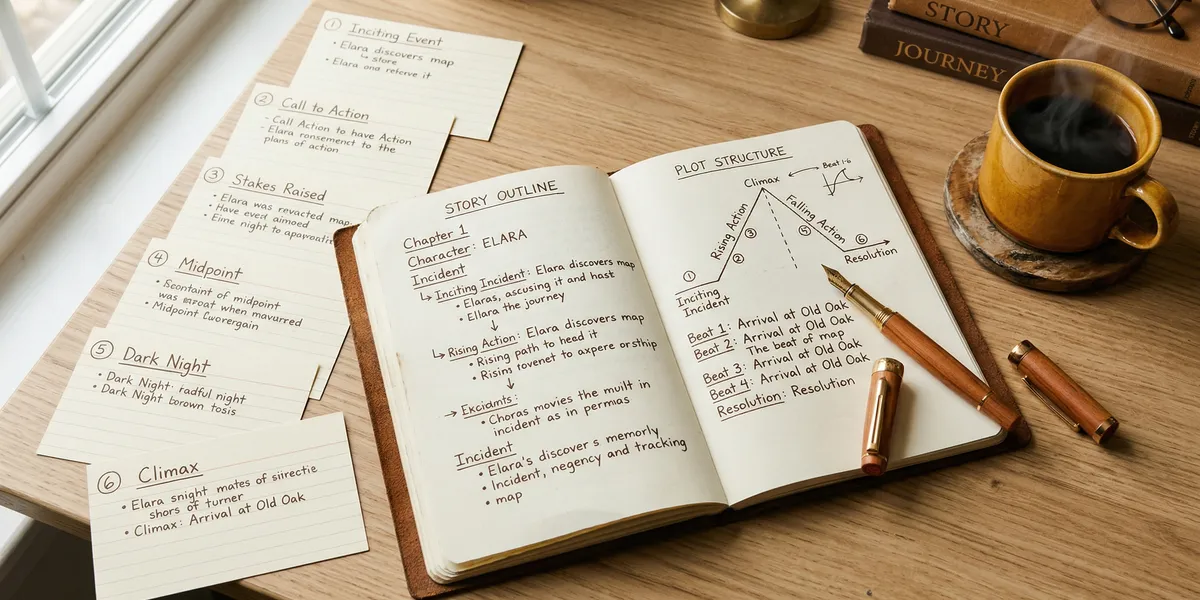 ① Inciting Event
• Elara discovers map
↳ store
• Elara and reterve it
② Call to Action
- Call Action to have Action
- Elara ronsement to the
plans of action
③ Stakes Raised
• Elara was revacted map
• Have eved aimoed
• Eime night to
④ Midpoint
• of midpoint
was when mavurred
• Midpoint
⑤ Dark Night
• Dark Night: radful night
• Dark Night borown tosis
⑥ Climax
• Elara snight mates of siirectie
shors of turner
• Climax: Arrival at Old Oak
STORY OUTLINE
Chapter 1
Character: ELARA
Incident
↳ Inciting Incident: Elara discovers map
• Elaras, ascusing it and hast
• Ellara the journey
↓
↳ Rising Action: Elara discovers map
• Rising path to head it
• Rising rovenet to axpere orstip
↓
→ Excidnts:
• Choras movies the muilt in
incident as in permias
Incident
• Elara's discover s memorly
• Incident, negency and tracking
• map
PLOT STRUCTURE
Climax
Beat 1-6
Rising Action
Falling Action
① ② ③ ⑤ ⑥
Resolution
Inciting
Incident
Beat 1: Arrival at Old Oak
Beat 2: Arrival at Old Oak
The beat of map
Beat 3: Arrival at Old Oak
Beat 4: Arrival at Old Oak
Resolution: Resolution
STORY
JOURNEY